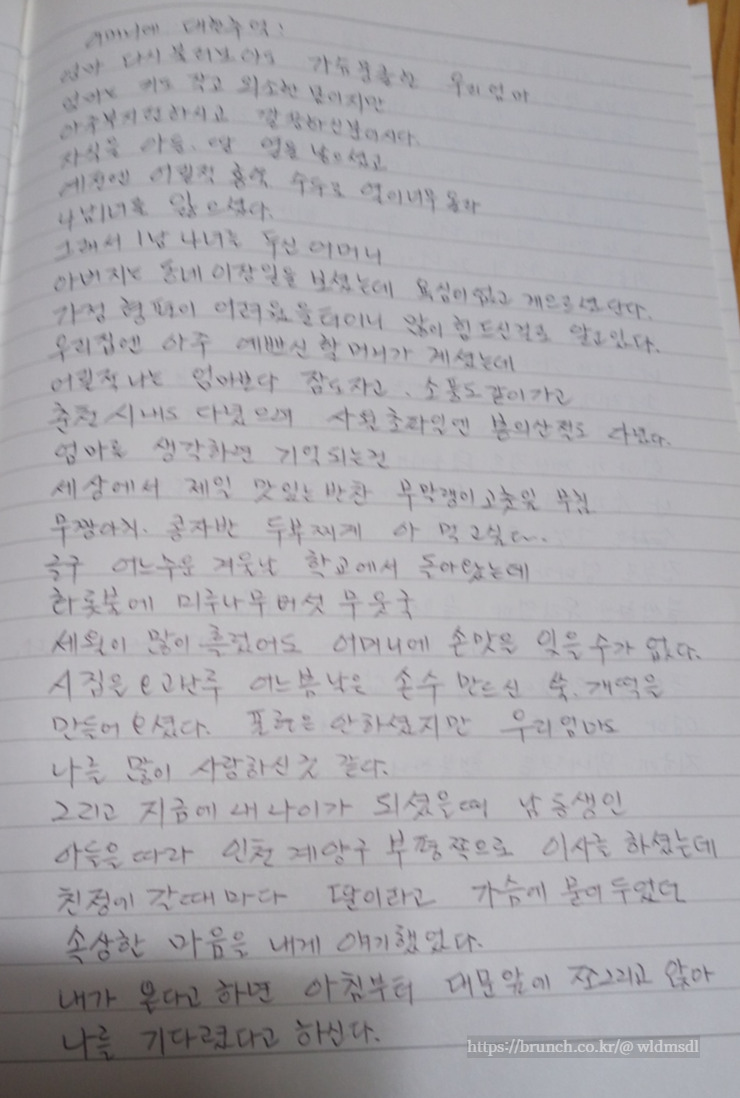 어머니에 대한 추억:
엄마 다시 불러보아도 가슴 뭉클한 우리 엄마
엄마는 키도 작고 외소한 몸이지만
아주 부지런하시고 깔끔하신 분이시다.
자식을 아들, 딸 열을 낳으셨고
예전엔 어릴적 홍역, 수두로 열이 너무 올라
4남1녀를 잃으셨다.
그래서 1남 4녀를 두신 어머니
아버지는 동네 이장일을 보셨는데 욕심이 없고 게으르셨단다.
가정 형편이 어려웠을터이니 많이 힘드신걸로 알고있다.
우리집엔 아주 예쁘신 할머니가 계셨는데
어릴적 나는 엄마보다 잠도자고, 소풍도 같이가고
춘천 시내도 다녔으며 사월초파일엔 봉의산 절도 다녔다.
엄마를 생각하면 기억되는건
세상에서 제일 맛있는 반찬 무말랭이 고춧잎 무침
무짱아치. 콩자반 두부찌게 아 먹고싶다.
눈 어느추운 겨울날 학교에서 돌아왔는데
화롯불에 미루나무버섯 무웃국
세월이 많이 흘렀어도 어머니에 손맛을 잊을수가 없다.
시집을 오고난후 어느봄날은 손수 만드신 쑥, 개떡을
만들어 오셨다. 표현은 안하셨지만 우리엄마도
나를 많이 사랑하신것 같다.
그리고 지금에 내 나이가 되셨을때 남동생인
아들을 따라 인천 계양구 부평쪽으로 이사를 하셨는데
친정에 갈때마다 딸이라고 가슴에 묻어두었던
속상한 마음을 내게 얘기했었다.
내가 온다고 하면 아침부터 대문앞에 쪼그리고 앉아
나를 기다렸다고 하신다.
https://brunch.co.kr/@wldmsdl